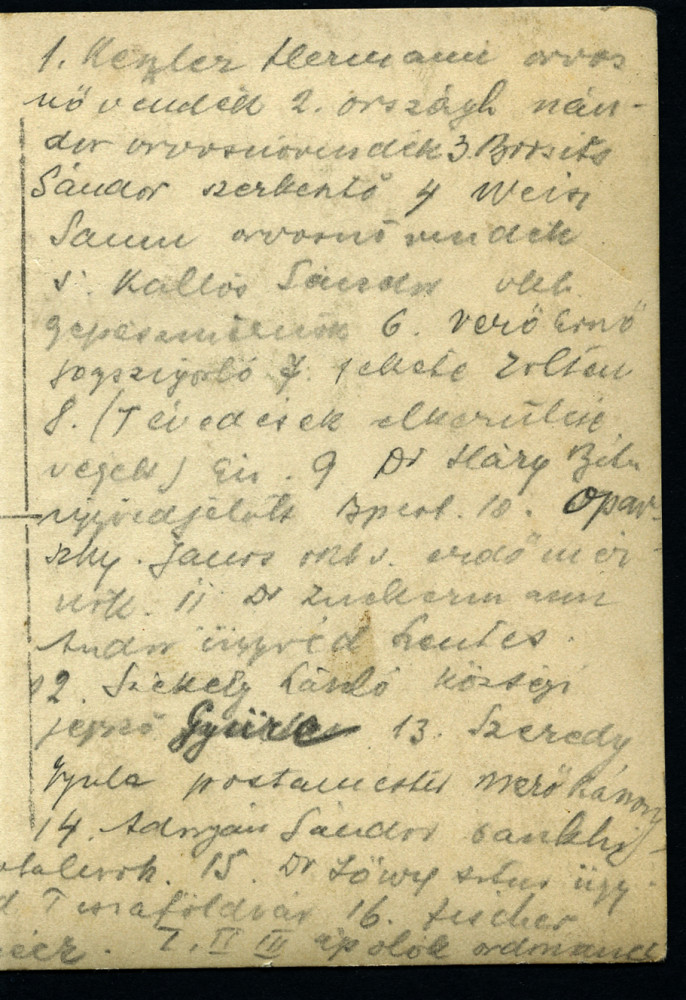 1. Kenzler Hermann orvos
növendék 2. országh nán-
dor orvosnövendék 3. Brosits
Sándor szerkentő 4 Weisz
Samu orvosnövendék
5. Kallós Sándor okl.
gépészmérnök 6. Verő Ernő
jogszigorló 7. Fekete Zoltán
8. (Tévedések elkerülése
végett) Én. 9 Dr Háry Béla
ügyvédjelölt Bpest. 10. Opar-
szky János okl. erdőmér
nök. 11 Dr Zuckermann
Andor ügyvéd Szentes.
12. Székely László községi
jegyző Gyüre 13. Szeredy
Gyula postamester
14. Adorján Sándor bankhi-
15. Dr Lőwy Artur ügy-
d Tiszaföldvár 16. Fischer
I, II III ápolók